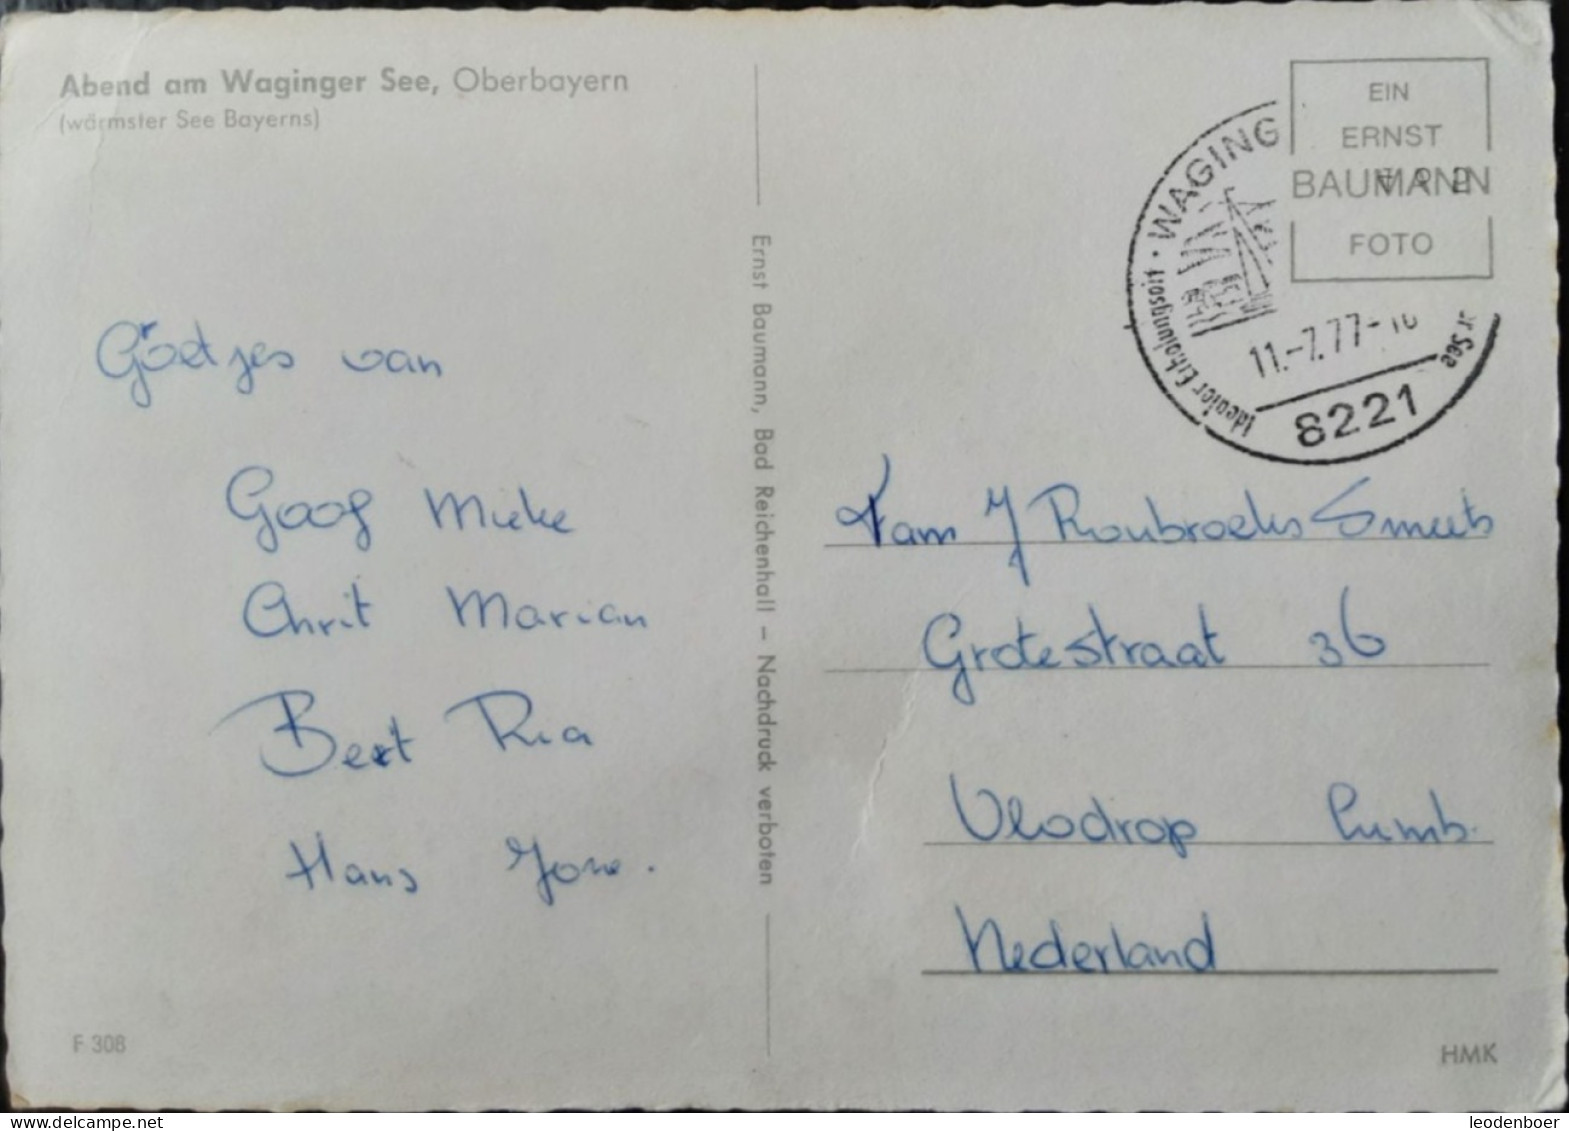 Abend am Waginger See, Oberbayern
(wärmster See Bayerns)
Göetjes van
Goof Mieke
Chrit Marian
Bert Ria
Hans
F 308
Ernst Baumann, Bad Reichenhall – Nachdruck verboten
EIN
ERNST
BAUMANN
FOTO
WAGING
11.-7.77-
8221
Idealer Erholungsort
See
Fam J Roubroeks Smeets
Grotestraat 36
Vlodrop Limb.
Nederland
HMK
leodenboer